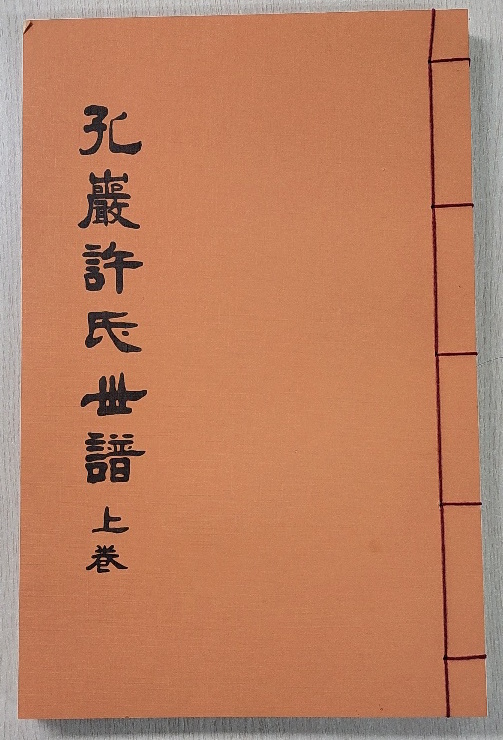 孔巖許氏世譜 上卷